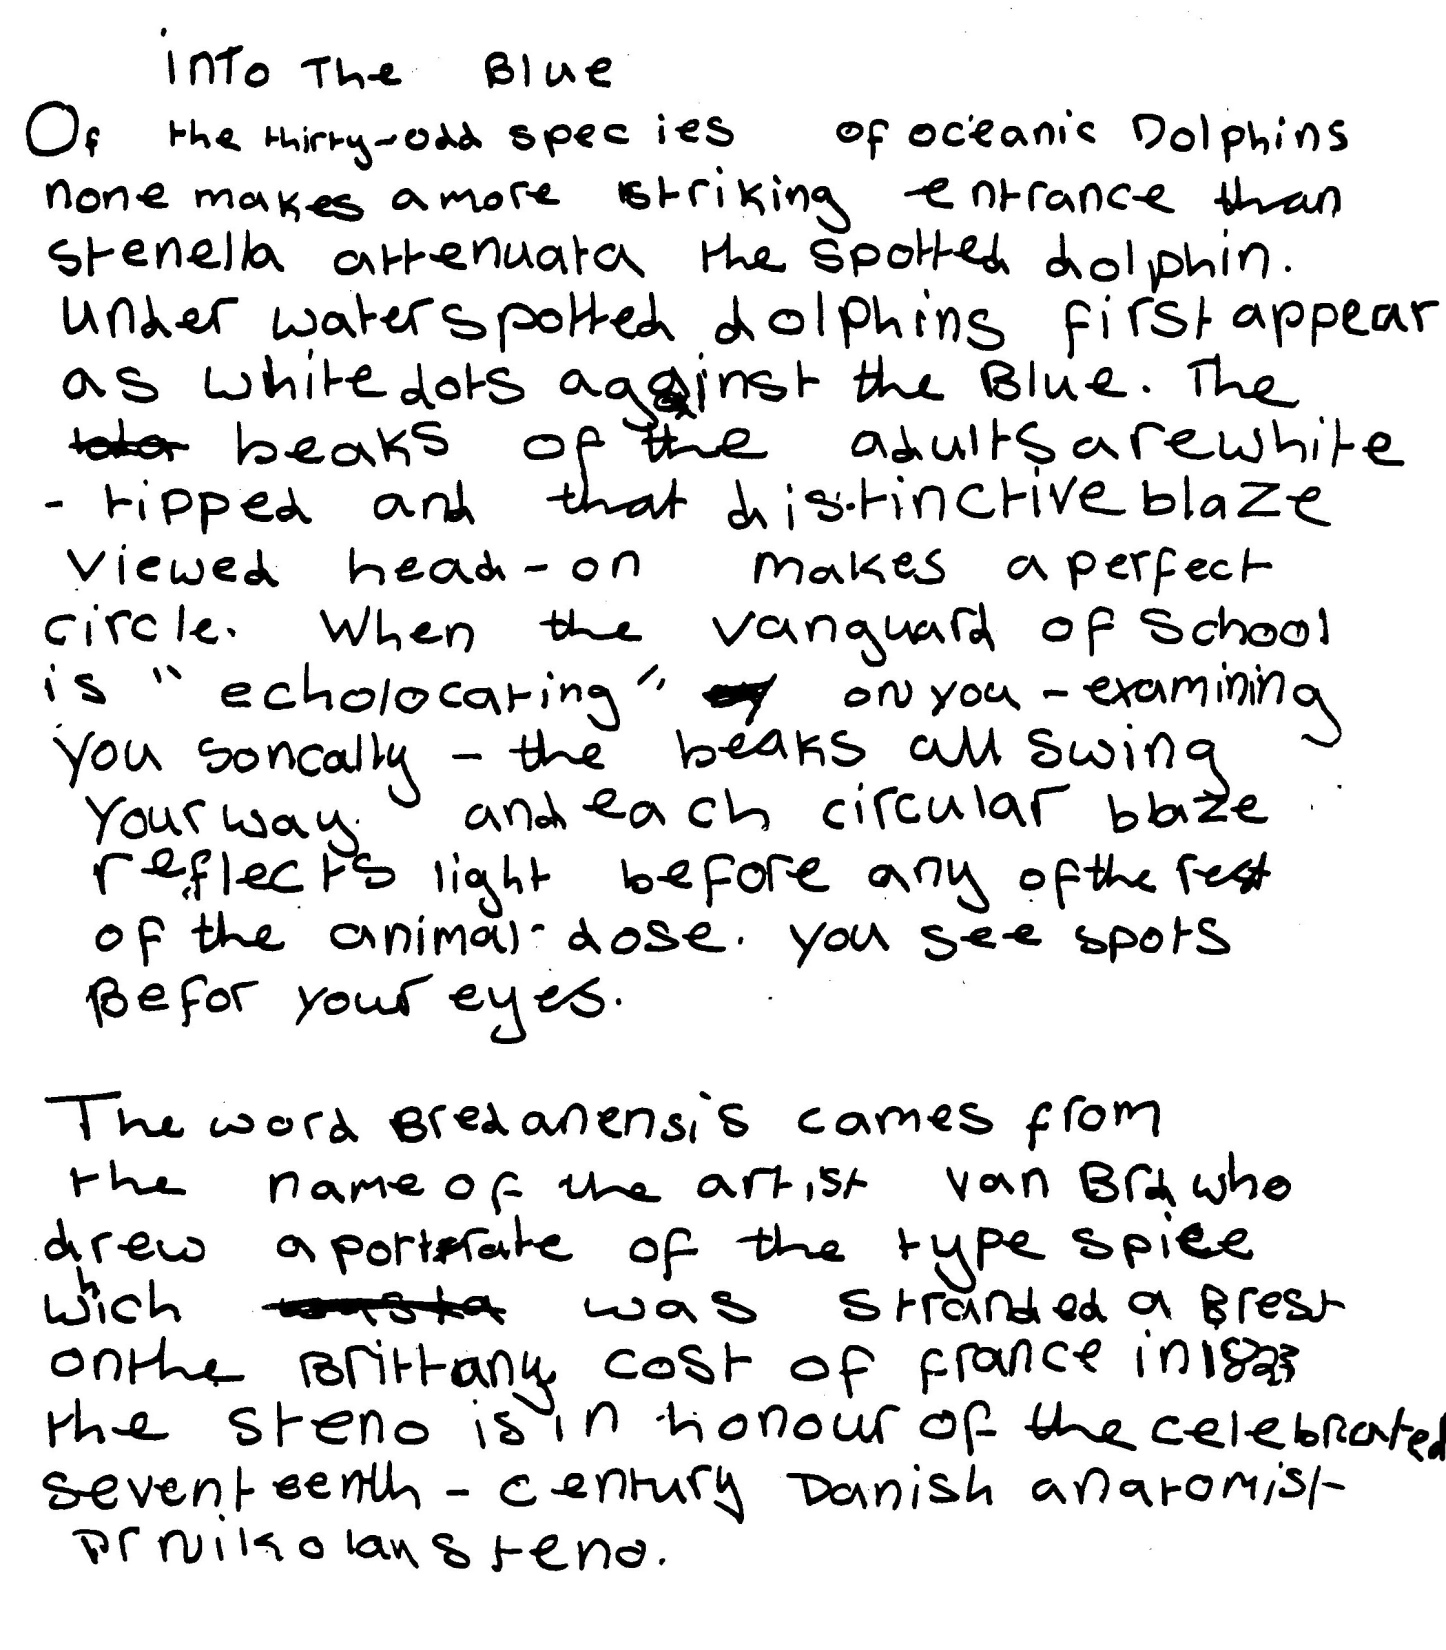 into The Blue
Of the thirty-odd species of oceanic Dolphins
none makes a more striking entrance than
stenella attenuata the spotted dolphin.
Under water spotted dolphins first appear
as white dots against the Blue. The
beaks of the adults are white
- tipped and that distinctive blaze
viewed head-on makes a perfect
circle. When the vanguard of School
is "echolocating" on you - examining
you soncally - the beaks all swing
your way. and each circular blaze
reflects light before any of the rest
of the animal- dose. you see spots
Befor your eyes.
The word Bredanensis cames from
the name of the artist van Brd who
drew a portrate of the type spice
which was stranded a Brest
on the Brittany cost of france in 1823
the steno is in honour of the celebrated
seventeenth - century Danish anatomist
Dr Nikolaus steno.